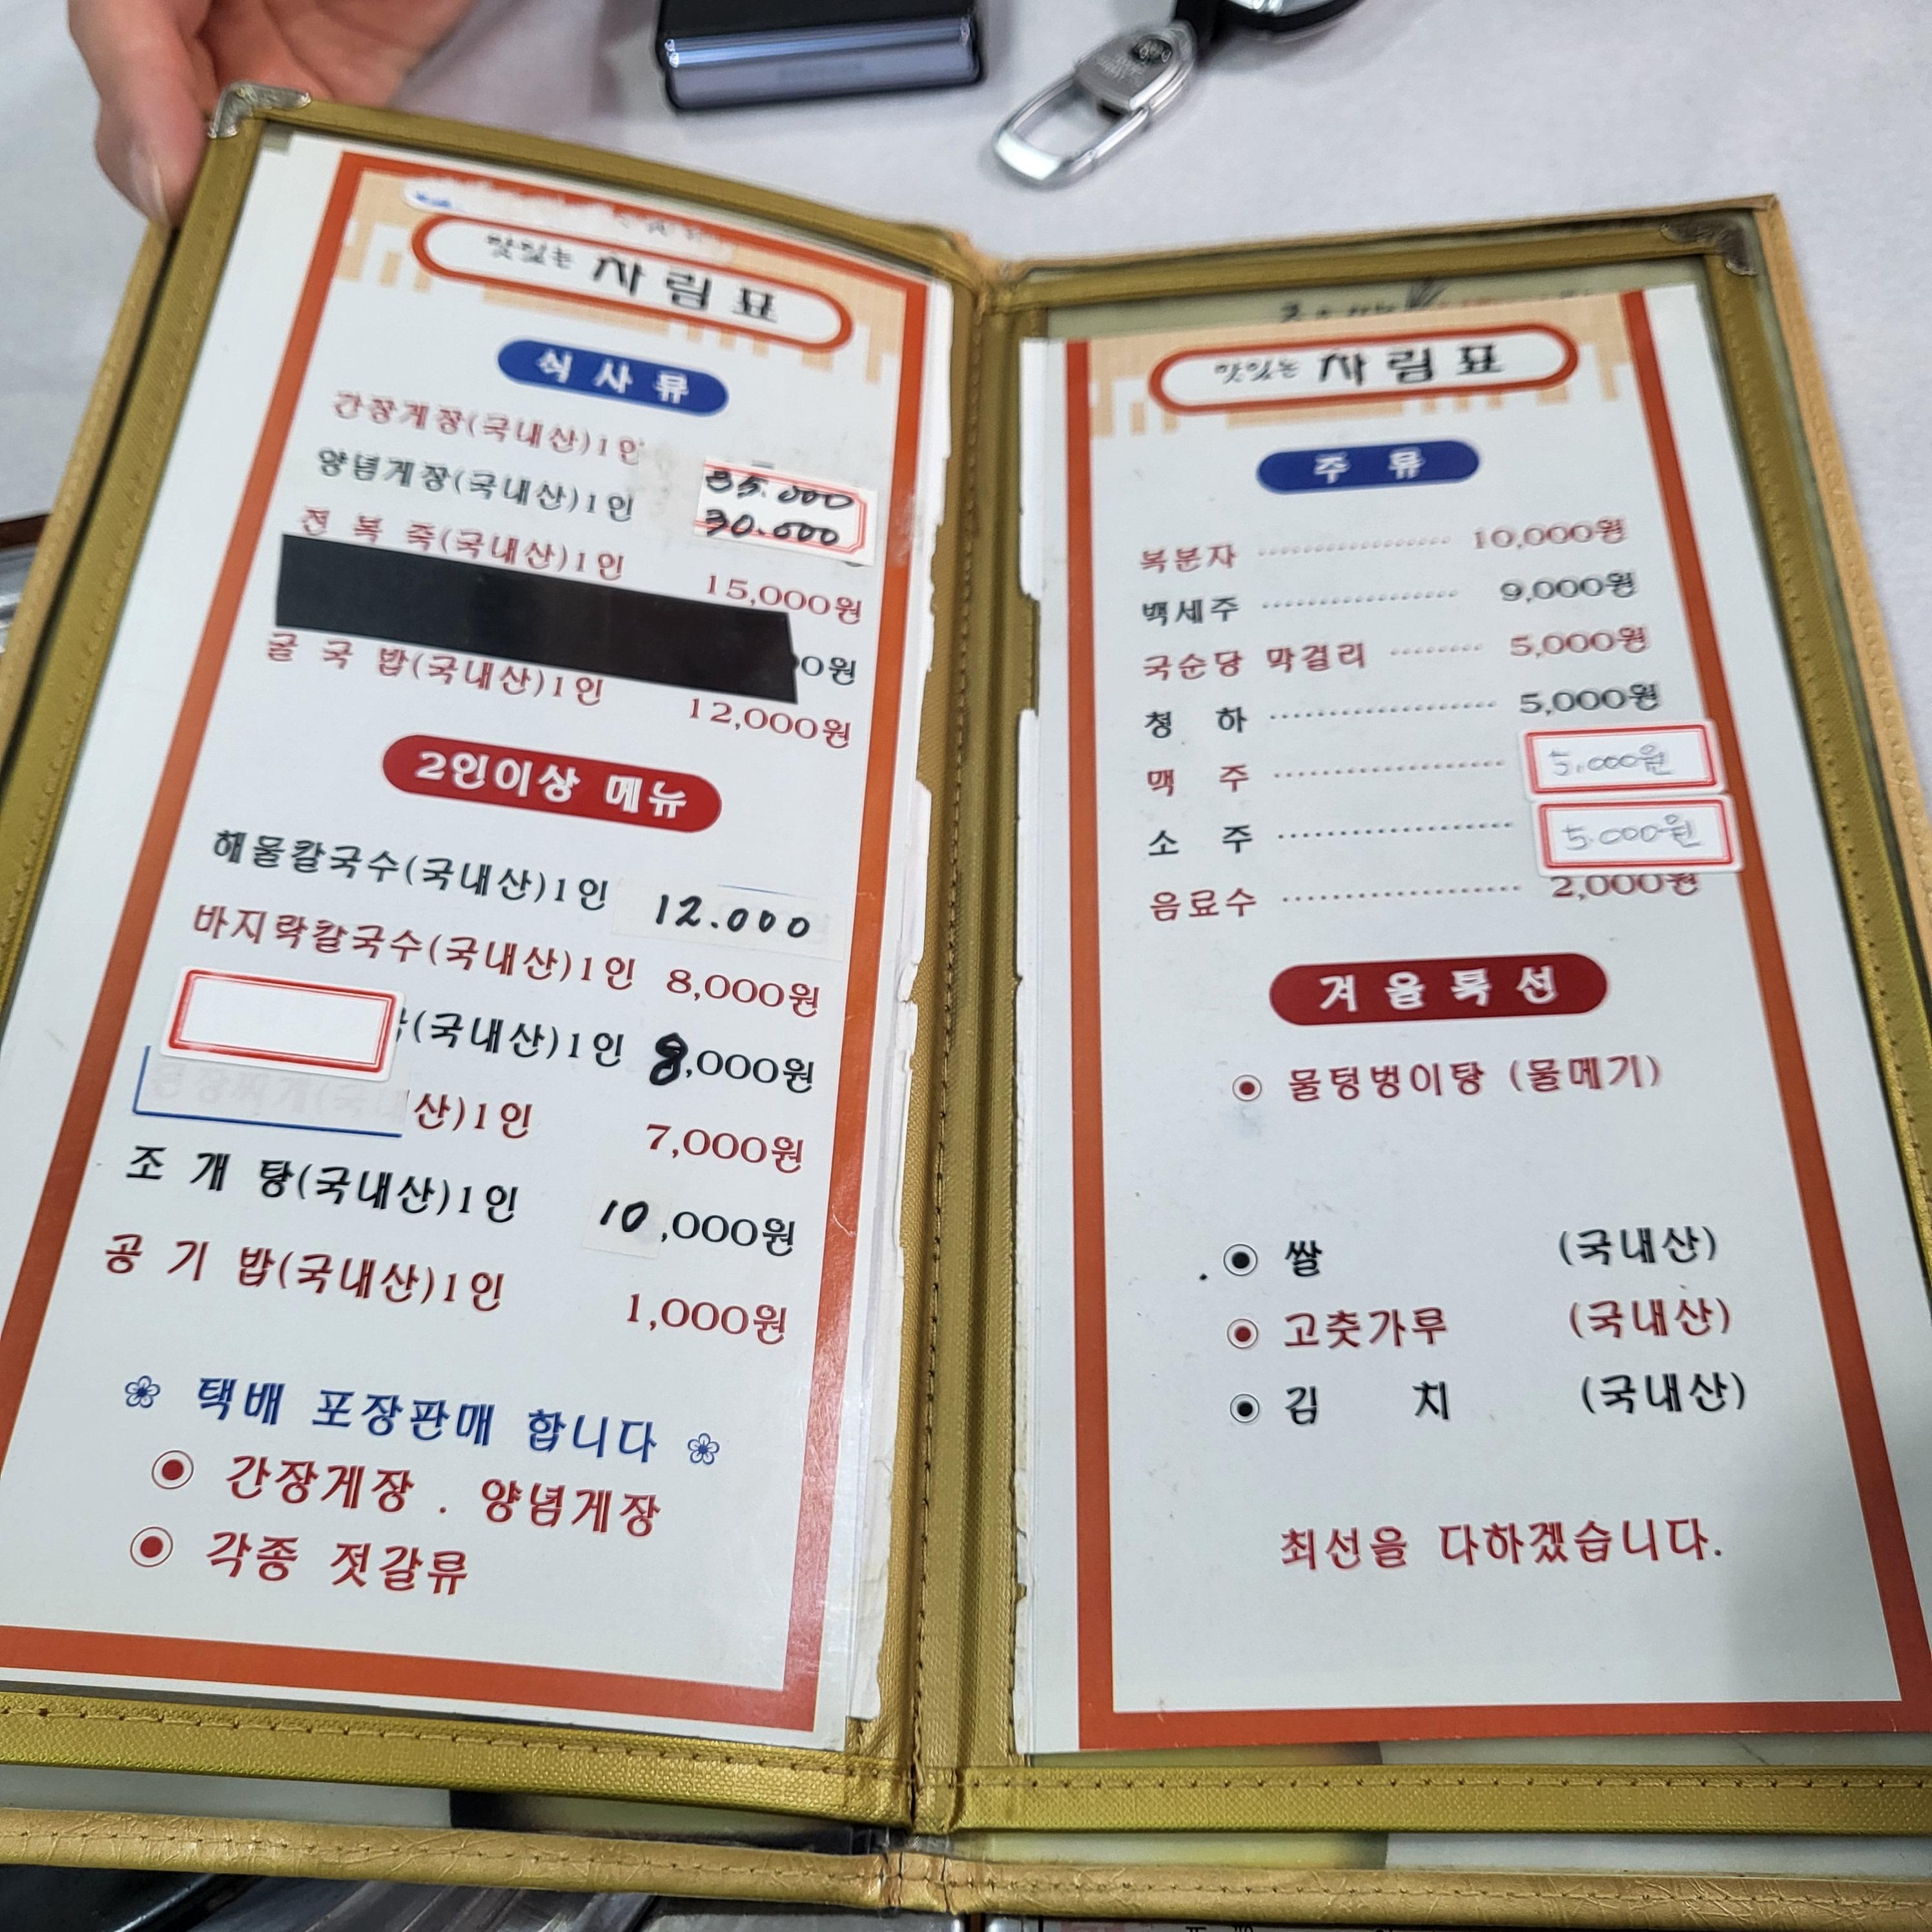 맛있는 차림표
식사류
간장게장(국내산)1인 35.000
양념게장(국내산)1인 30.000
전 복 죽(국내산)1인 15,000원
0원
굴 국 밥(국내산)1인 12,000원
2인이상 메뉴
해물칼국수(국내산)1인 12.000
바지락칼국수(국내산)1인 8,000원
(국내산)1인 8,000원
된장찌개(국내산)1인 7,000원
조 개 탕(국내산)1인 10,000원
공 기 밥(국내산)1인 1,000원
택배 포장판매 합니다
간장게장 . 양념게장
각종 젓갈류
맛있는 차림표
주류
복분자 ················· 10,000원
백세주 ················· 9,000원
국순당 막걸리 ········ 5,000원
청 하 ···················· 5,000원
맥 주 ···················· 5,000원
소 주 ···················· 5.000원
음료수 ···················· 2,000원
겨울특선
물텅벙이탕 (물메기)
쌀 (국내산)
고춧가루 (국내산)
김 치 (국내산)
최선을 다하겠습니다.